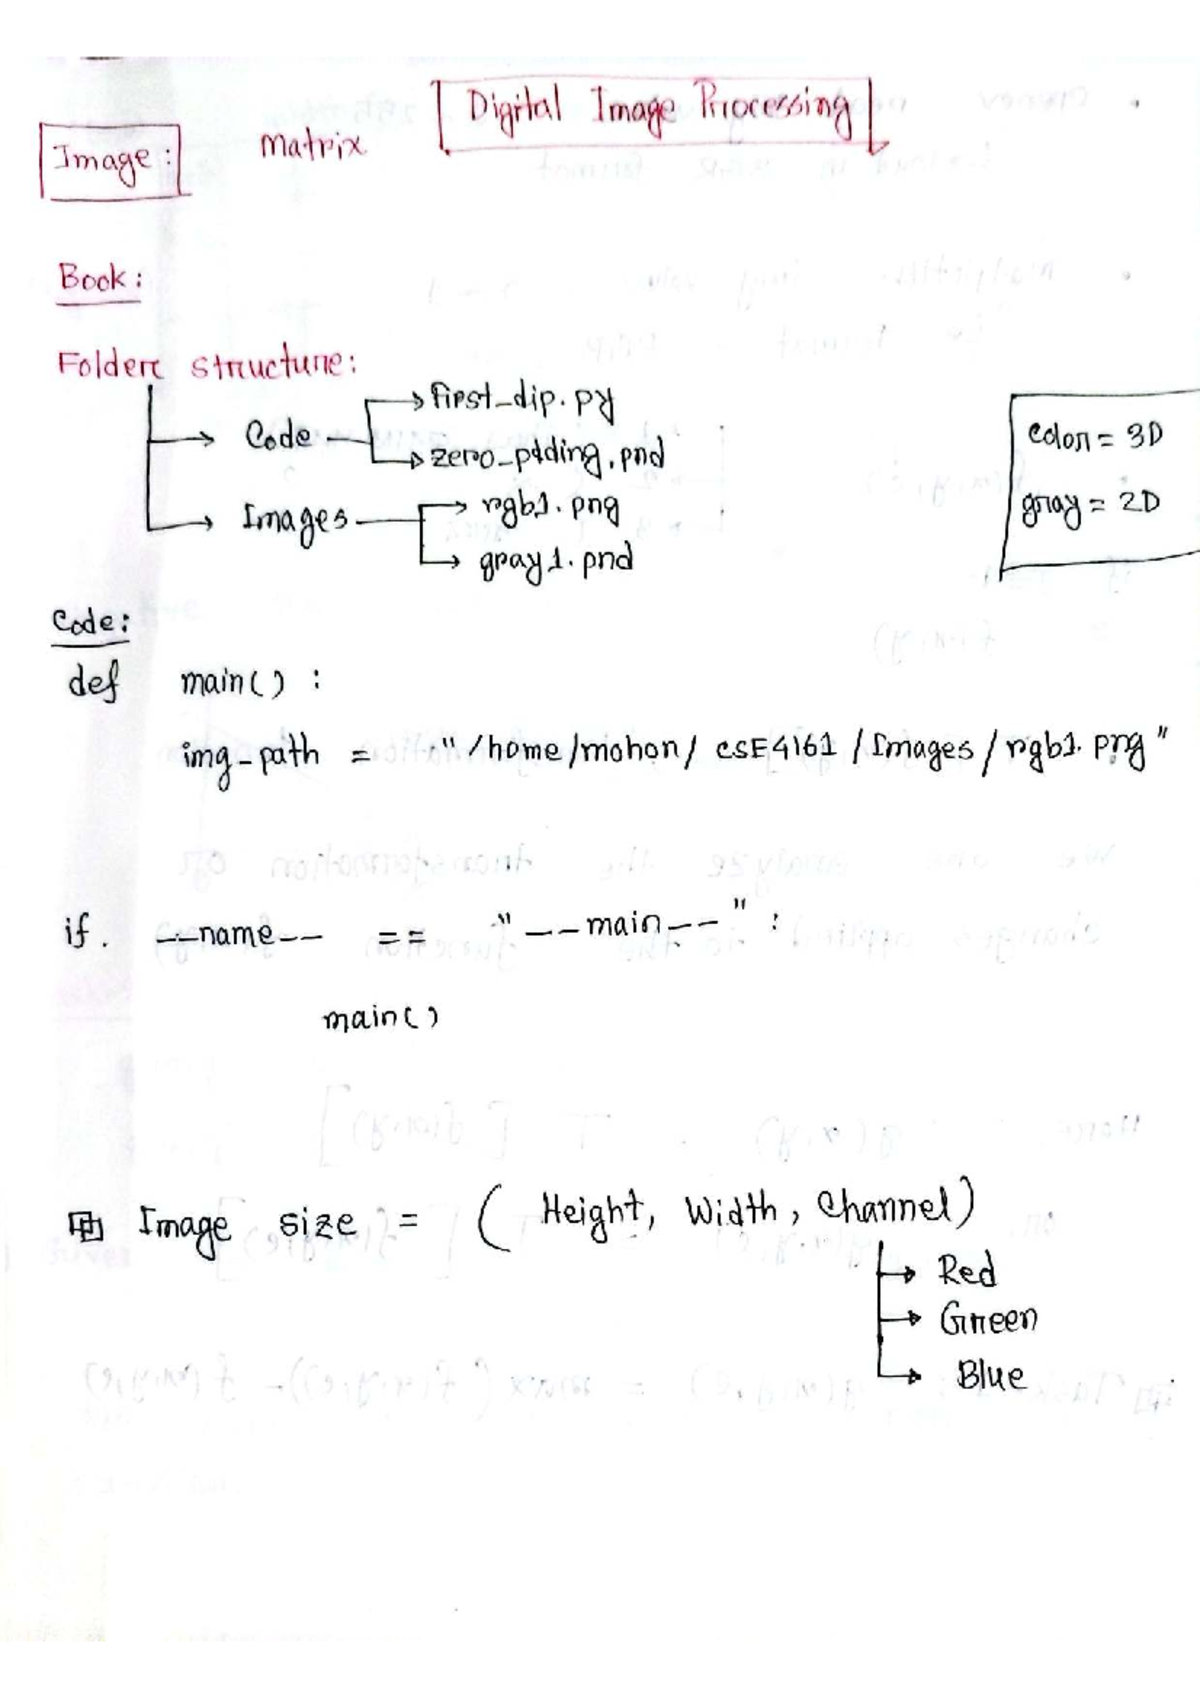 Digital Image Processing
Image: Matrix
Book:
Folder structure:
Code
first_dip.py
zero_ptding.pnd
Images
rgb1.png
gray1.pnd
Color = 3D
gray = 2D
Code:
def main():
img_path = "/home/mohon/CSE4161/Images/rgb1.png"
if __name__ == "__main__":
main()
Image size = (Height, Width, Channel)
Red
Green
Blue